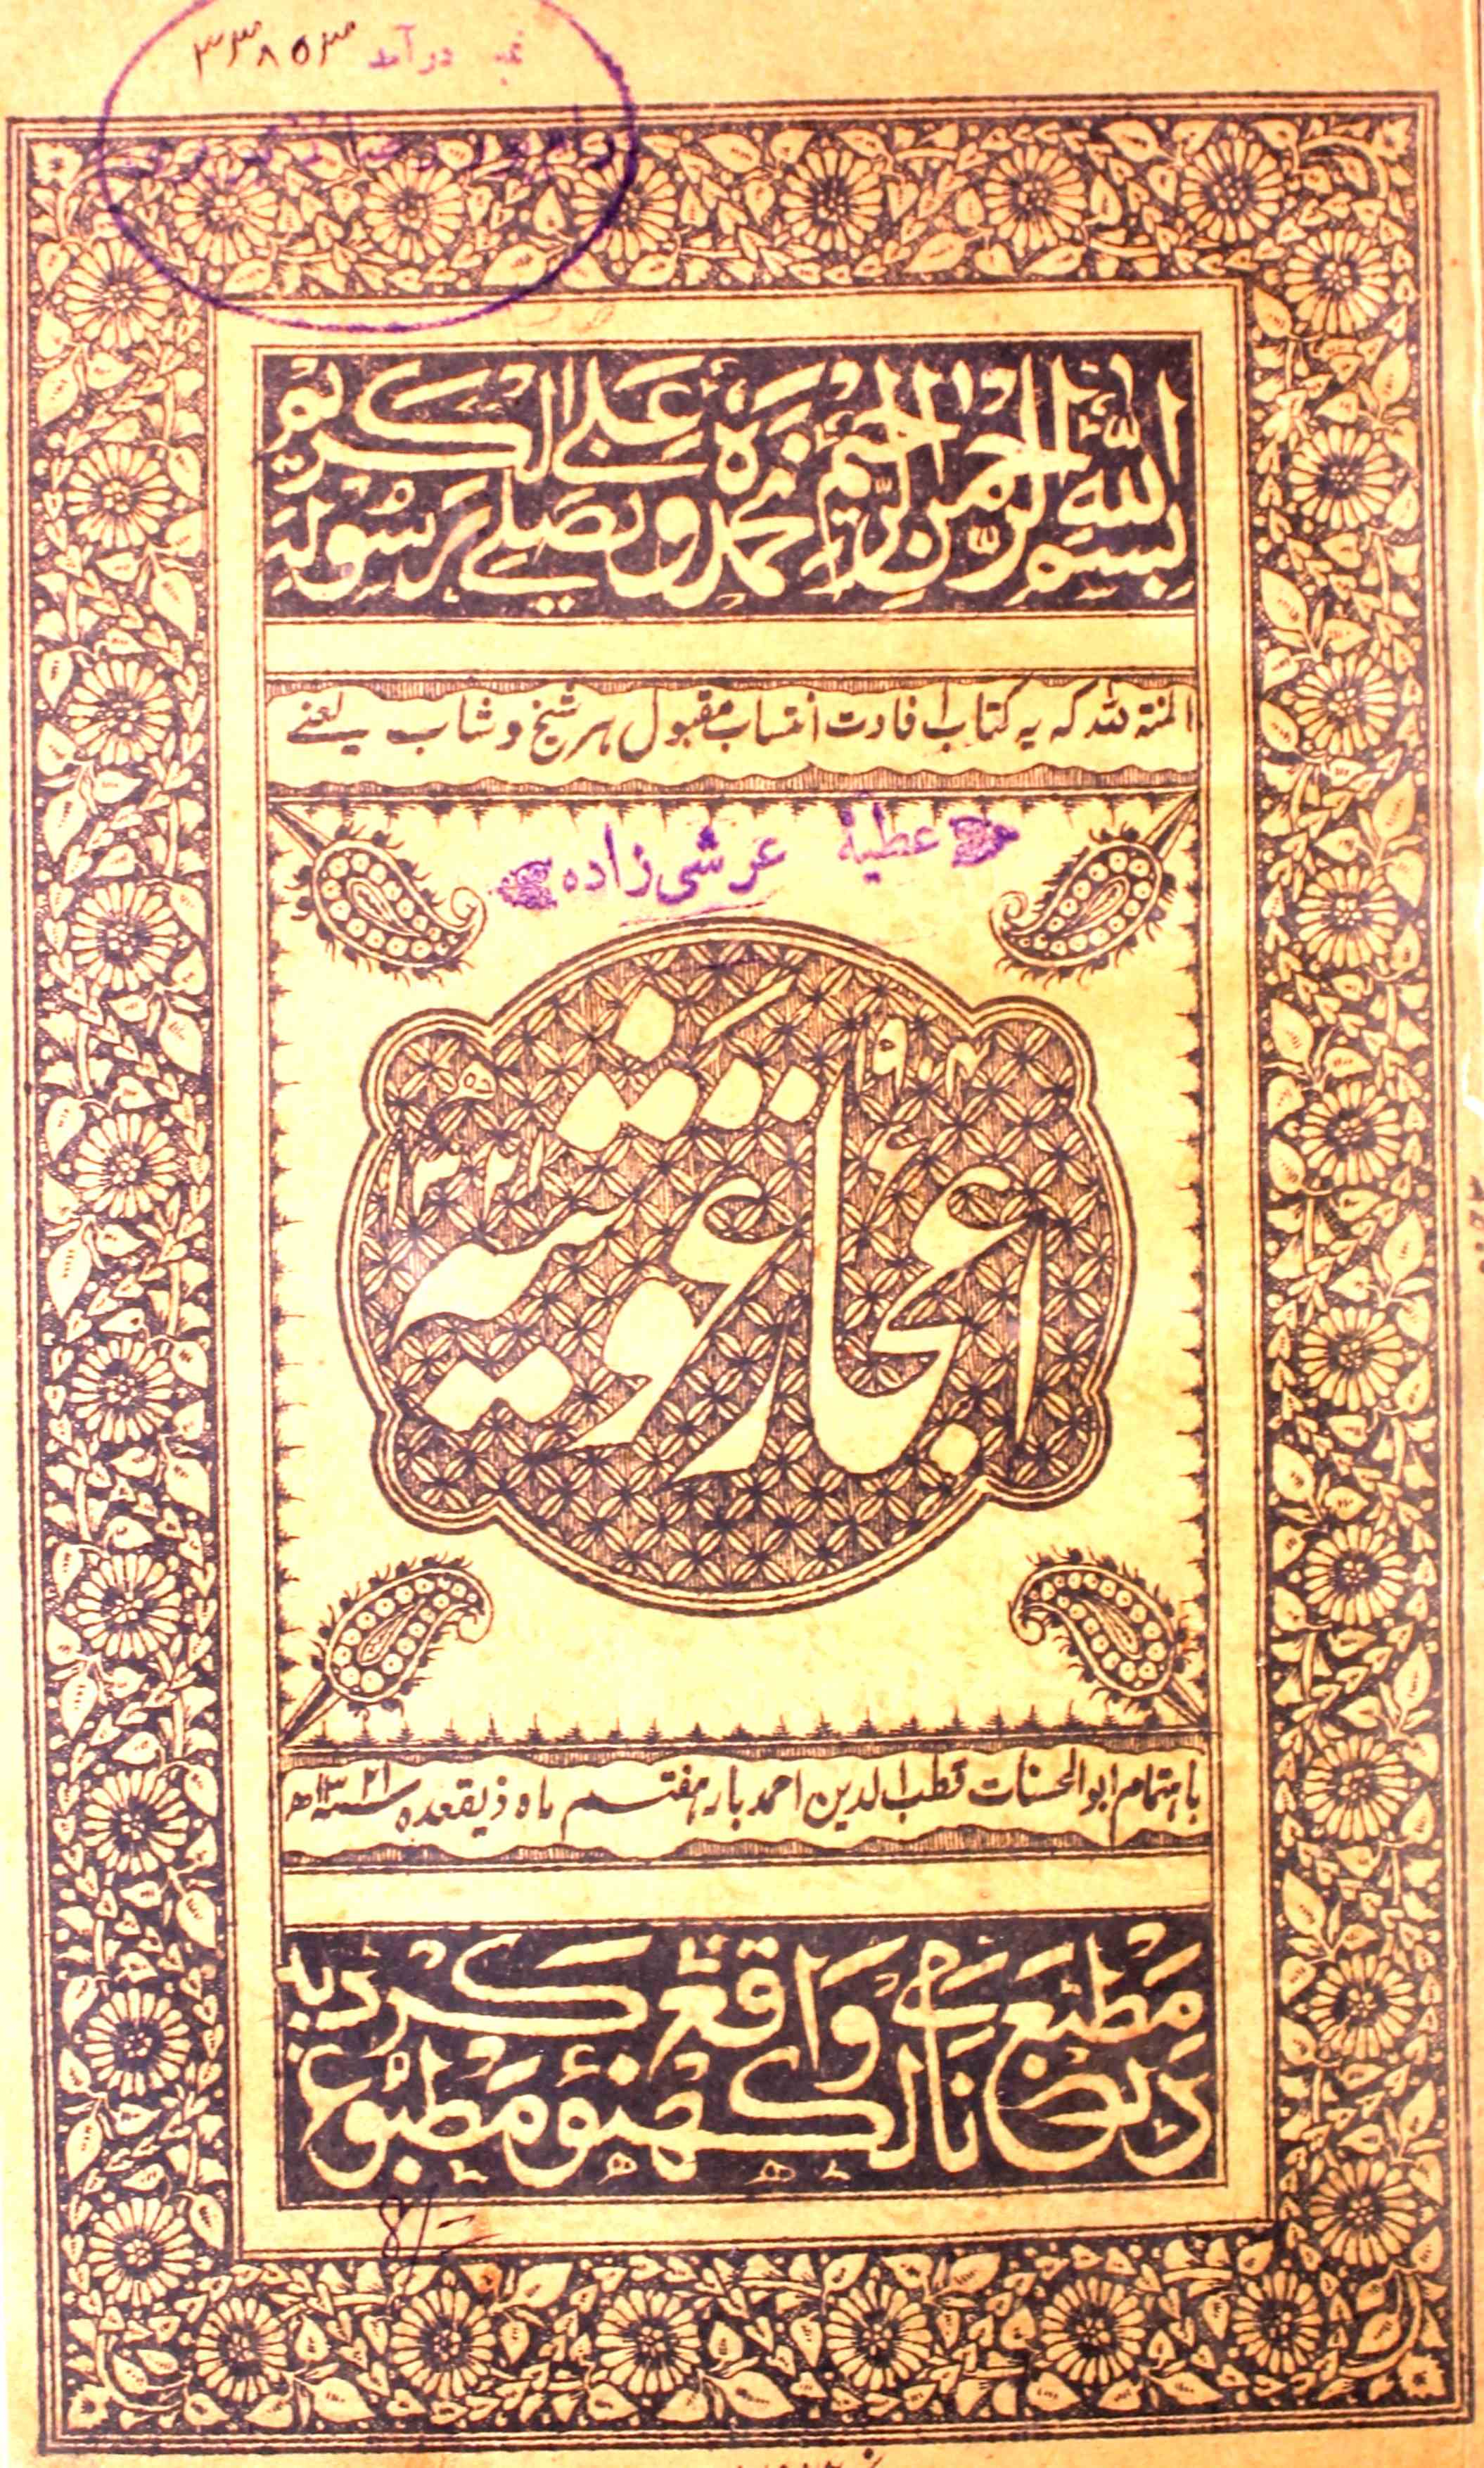 نمبر درآمد ۳۳۸۵۳
رامپور رضا لائبریری
بسم الله الرحمن الرحيم نحمده ونصلے علے رسوله الكريم
المنۃ للہ کہ یہ کتاب افادت انتساب مقبول ہر شیخ و شاب یعنے
عطیۂ عرشی زادہ
۱۹۰۴ء
اعجاز غوثیہ
۱۳۲۱ھ
باہتمام ابوالحسنات قطب الدین احمد بار ہفتم ماہ ذیقعدہ سنہ ۱۳۲۱ھ
در مطبع نامی واقع لکھنؤ مطبوع گردید
8/-